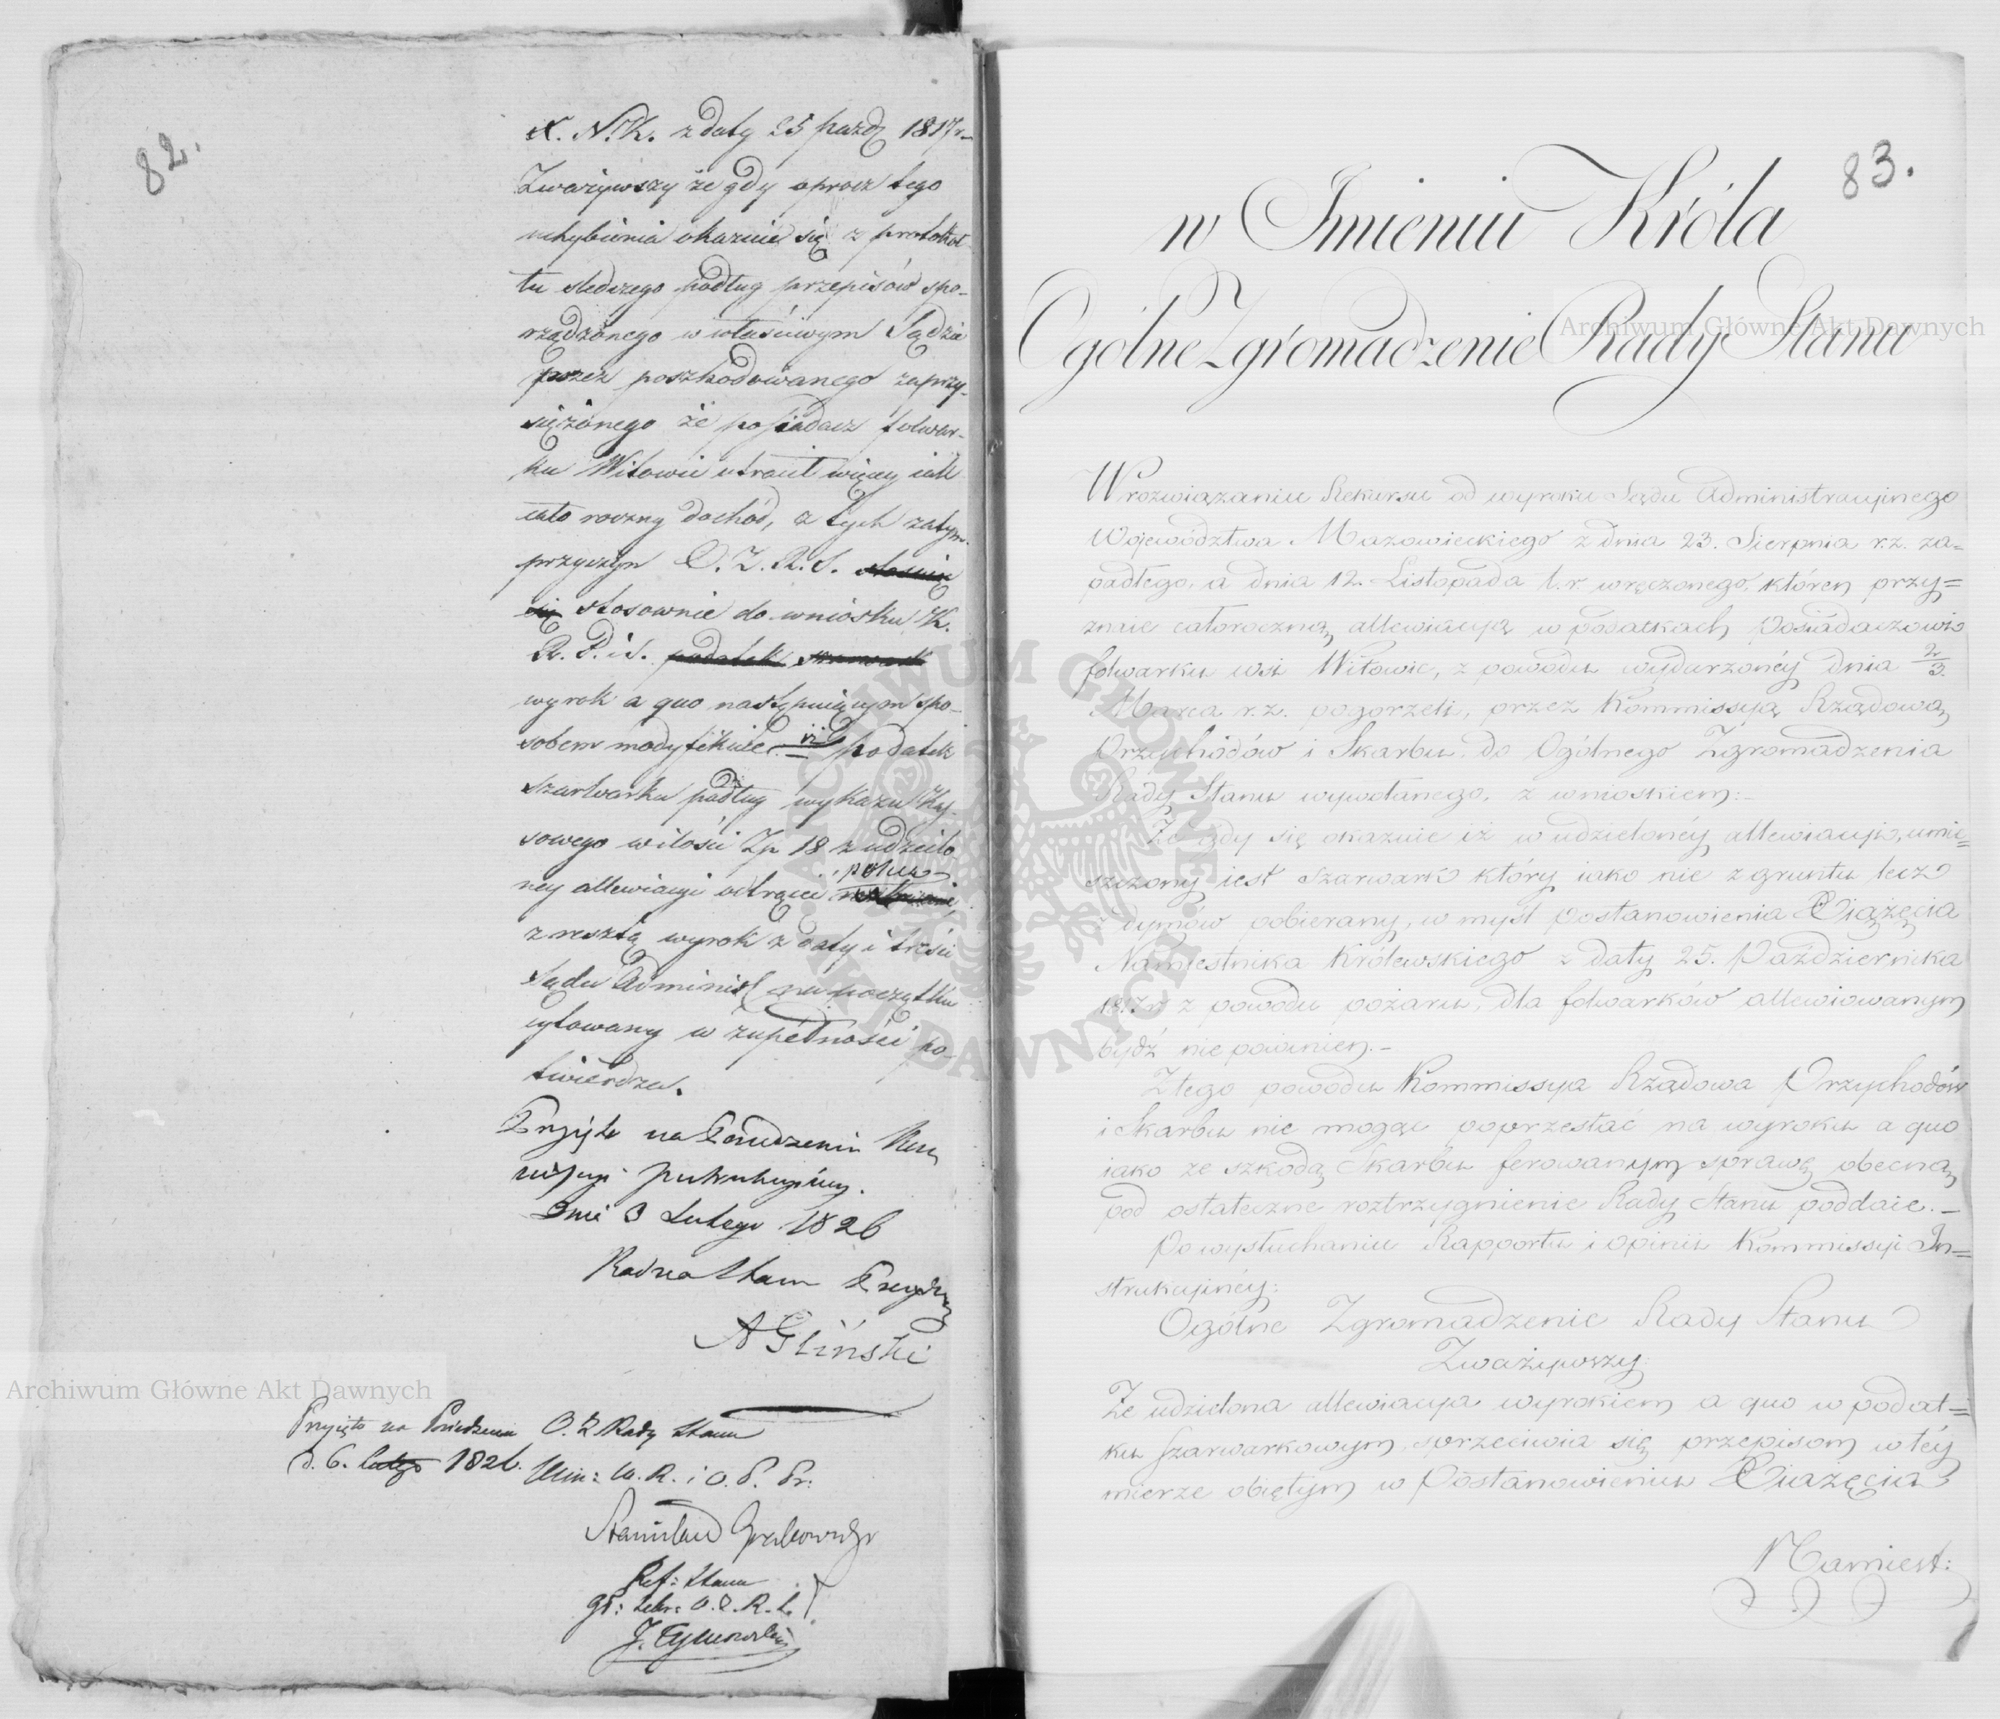 82.
X. N. K. z daty 25 pazdz 1817 r
Zważywszy że gdy oprocz tego
uchybienia okazuie się z protokół-
łu śledczego podług przepisów spo-
rządzonego w właściwym Sądzie
przez poszkodowanego zaprzy-
siężonego że possiadacz folwar-
ku Witowic utracił więcey iak
cało roczny dochód, z tych zatym
przyczyn O. Z. R. S. stosuiąc
się stosownie do wniosku K.
R. P. i S. podatek szarwark
wyrok a quo następuiącym spo-
sobem modyfikuie iż podatek
szarwarku podług wykazu Kas-
sowego w ilości Zp. 18 z udzielo-
ney allewiacyi odtrącić poleca
zresztą wyrok z daty i treści
Sądu Administ na początku
cytowany w zupełności po-
twierdza.
Przyjęto na Posiedzeniu Kom
missyi Instrukcyiney.
Dnia 3 Lutego 1826
Radca Stanu Prezyd
A Gliński
Przyięto na Posiedzeniu O. Z Rady Stanu
d. 6. Lutego 1826.
Min: W. R. i O. P. Pr:
Stanisław Grabowski
Ref: Stanu
gł: Sekr: O. Z. R. S.
J. Tymowski
83.
w Imieniu Króla
Ogólne Zgromadzenie Rady Stanu
W rozwiązaniu Rekursu od wyroku Sądu Administracyinego
Województwa Mazowieckiego z dnia 23. Sierpnia r. z. za=
padłego, a dnia 12. Listopada t. r. wręczonego, któren przy=
znaie całoroczną allewiacyą w podatkach Posiadaczowi
folwarku wsi Witowic, z powodu wydarzonéy dnia 2/3.
Marca r. z. pogorzeli, przez Kommissyą Rządową
Przychodów i Skarbu, do Ogólnego Zgromadzenia
Rady Stanu wywołanego, z wnioskiem:-
Że gdy się okazuie iż w udzielonéy allewiacyi, umie=
szczony iest Szarwark który iako nie z gruntu lecz
z dymów pobierany, w myśl postanowienia Xiążęcia
Namiestnika Królewskiego z daty 25. Października
1817 r. z powodu pożaru, dla folwarków allewiowanym
bydź nie powinien.-
Z tego powodu Kommissya Rządowa Przychodów
i Skarbu nie mogąc poprzestać na wyroku a quo
iako ze szkodą Skarbu ferowanym sprawę obecną
pod ostateczne roztrzygnienie Rady Stanu poddaie.-
Po wysłuchaniu Rapportu i opinii Kommissyi In=
strukcyinéy:
Ogólne Zgromadzenie Rady Stanu
Zważywszy:
Że udzielona allewiacya wyrokiem a quo w podat=
ku szarwarkowym, sprzeciwia się przepisom w téy
mierze obiętym w Postanowieniu Xiążęcia
Namiest:
Archiwum Główne Akt Dawnych
Archiwum Główne Akt Dawnych
ARCHIWUM GŁÓWNE AKT DAWNYCH